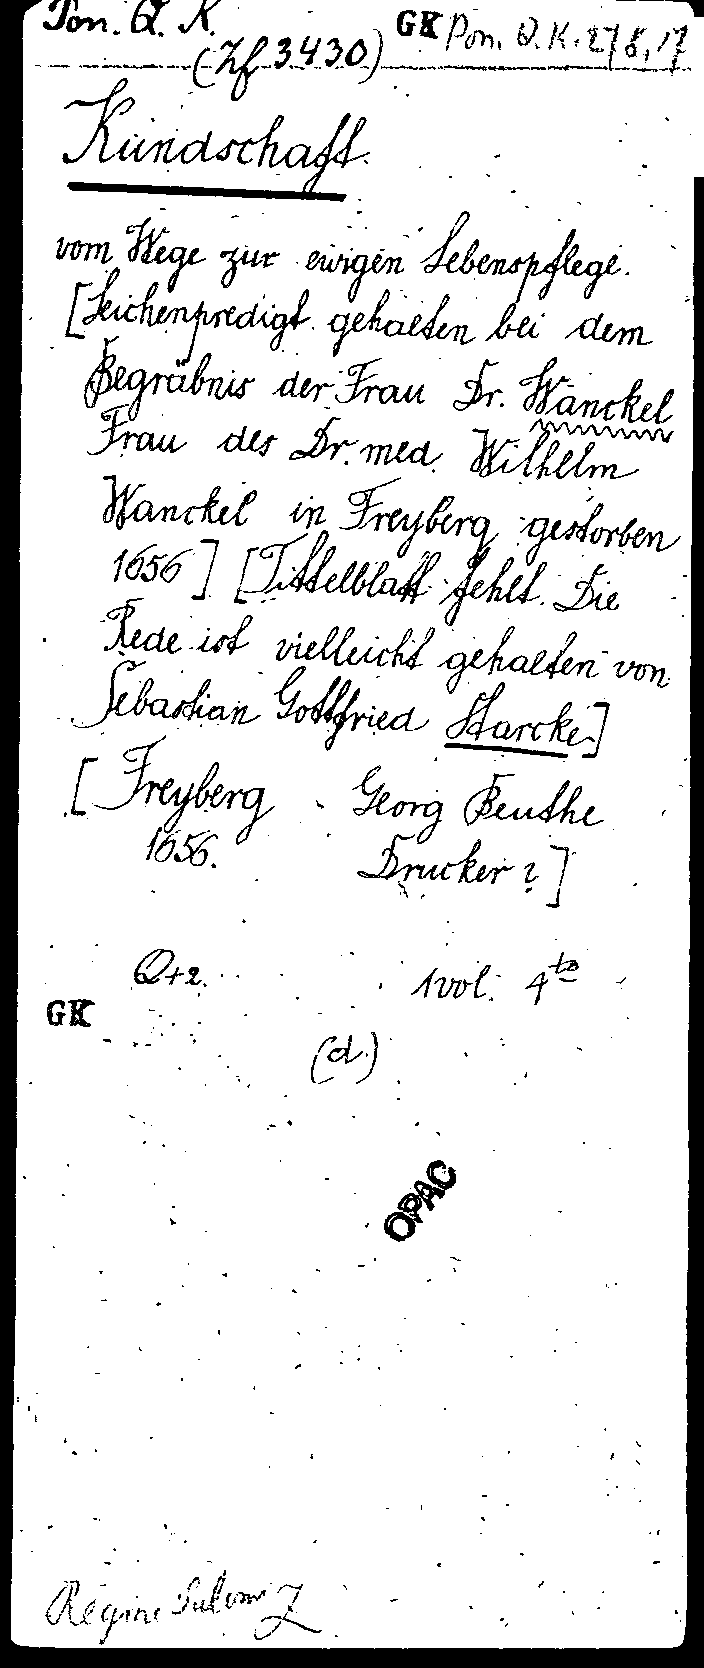 Pon. Q. K.
(Zf 3430)
GK Pon. Q. K. 278,17
Kundschaft
vom Wege zur ewigen Lebenspflege.
[Leichenpredigt gehalten bei dem
Begräbnis der Frau Dr. Wanckel
Frau des Dr. med. Wilhelm
Wanckel in Freyberg gestorben
1656] [Tittelblatt fehlt. Die
Rede ist vielleicht gehalten von
Sebastian Gottfried Starcke.]
[Freyberg Georg Beuthe
1656. Drucker?]
Q+2. 1 vol. 4to
GK
(d.)
OPAC
Regine